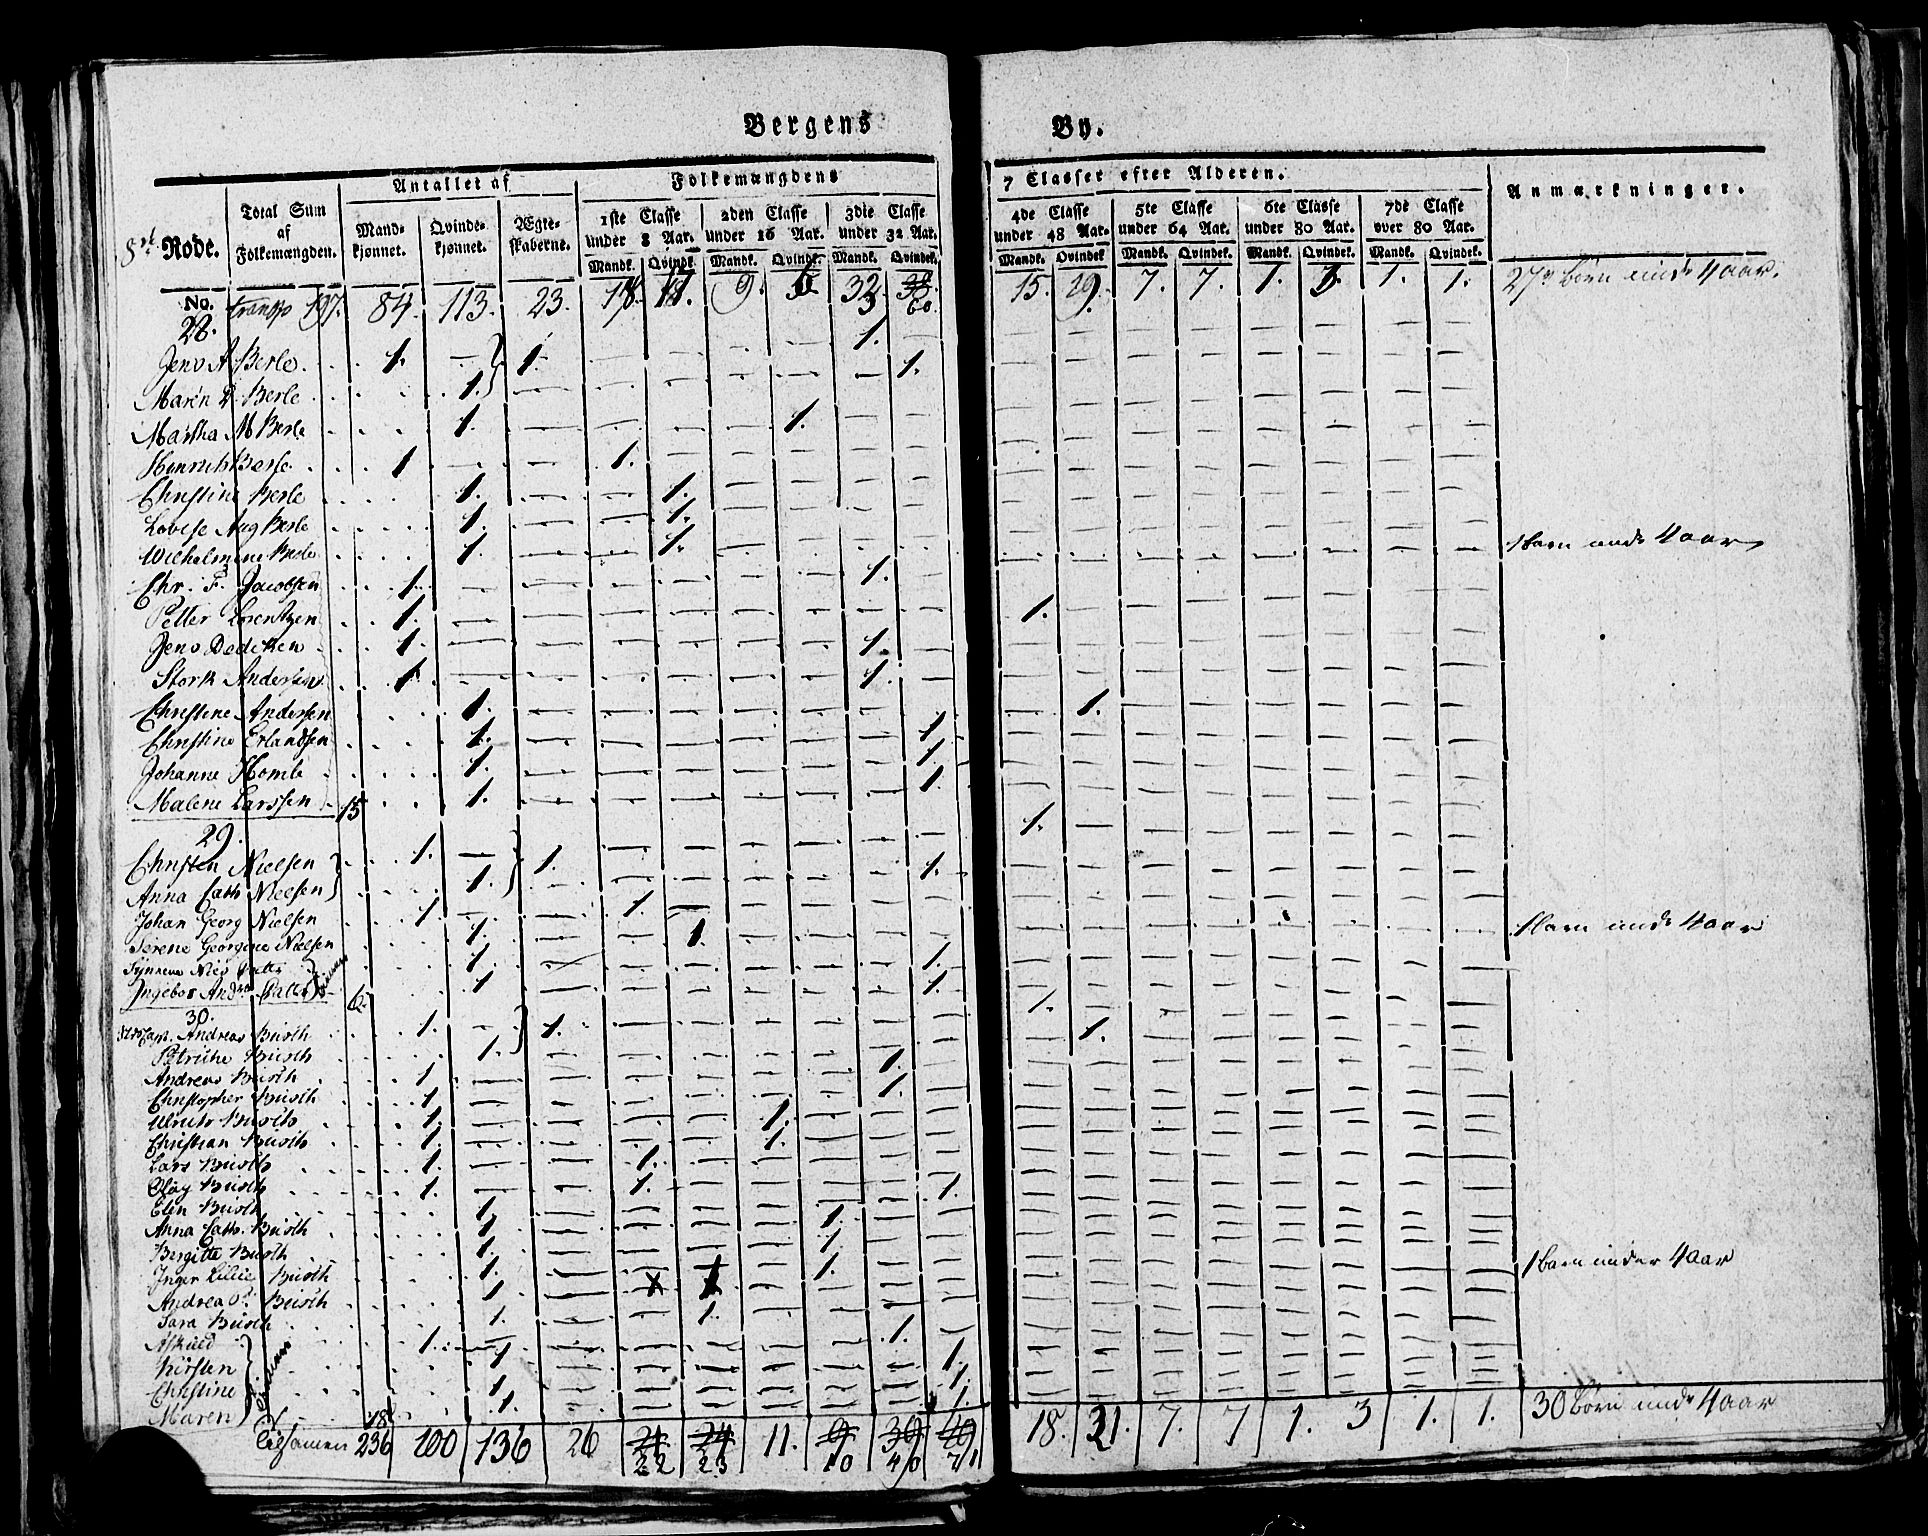 Bergens By.
8de Rode.
Total Sum af Folkemængden.
Antallet af
Mandkjønnet. Qvindekjønnet. Ægteskaberne.
Folkemængdens 7 Classer efter Alderen.
1ste Classe under 8 Aar. 2den Classe under 16 Aar. 3die Classe under 32 Aar. 4de Classe under 48 Aar. 5te Classe under 64 Aar. 6te Classe under 80 Aar. 7de Classe over 80 Aar.
Anmærkninger.
Mandk. Qvindek. Mandk. Qvindek. Mandk. Qvindek. Mandk. Qvindek. Mandk. Qvindek. Mandk. Qvindek. Mandk. Qvindek.
No. transp 197. 84. 113. 23. 18. 9. 32. 60. 15. 29. 7. 7. 1. 3. 1. 1. 27 börn unde 4 aar.
28.
Jens A Berle 1. 1. 1.
Maren D. Berle 1. 1.
Martha M Berle 1. 1.
Henrich Berle 1 1.
Christine Berle 1. 1.
Lovise Aug Berle 1. 1.
Wilhelmine Berle 1. 1. 1 barn unde 4 aar
Chr. F. Jacobsen 1. 1.
Petter Lorentzen 1. 1.
Jens Dedeken 1. 1.
Stork Andersen 1. 1.
Christine Andersen 1. 1.
Christine Erlandsen 1. 1.
Johanne Homle 1. 1.
Malene Larssen 15 1. 1.
29.
Christen Nielsen 1. 1. 1.
Anna Cath Nielsen 1. 1.
Johan Georg Nielsen 1 1.
Serene Georgine Nielsen 1. 1. 1 barn unde 4 aar
Synneve Nies Datter 1. 1.
Ingebor And Datter 6. 1. 1.
30.
Capt. Andreas Busch 1. 1. 1.
Petriche Busch 1. 1.
Andreas Busch 1. 1.
Christopher Busch 1. 1.
Ulrich Busch 1. 1
Christian Busch 1. 1.
Lars Busch 1. 1.
Olay Busch 1. 1.
Elen Busch 1. 1.
Anna Cath. Busch 1. 1.
Bergitte Busch 1. 1.
Inger Busch 1. 1.
Andrea Busch 1. x 1 1 barn under 4 aar
Sara Busch 1. 1.
Askild 1. 1.
Kirsten 1 1.
Christine 1 1.
Maren 18 1. 1.
Tilsamen 236 100 136 26 21 22 24 23 11. 9 10 39 40 69 71 18. 31. 7. 7 1. 3 1. 1. 30 börn unde 4 aar